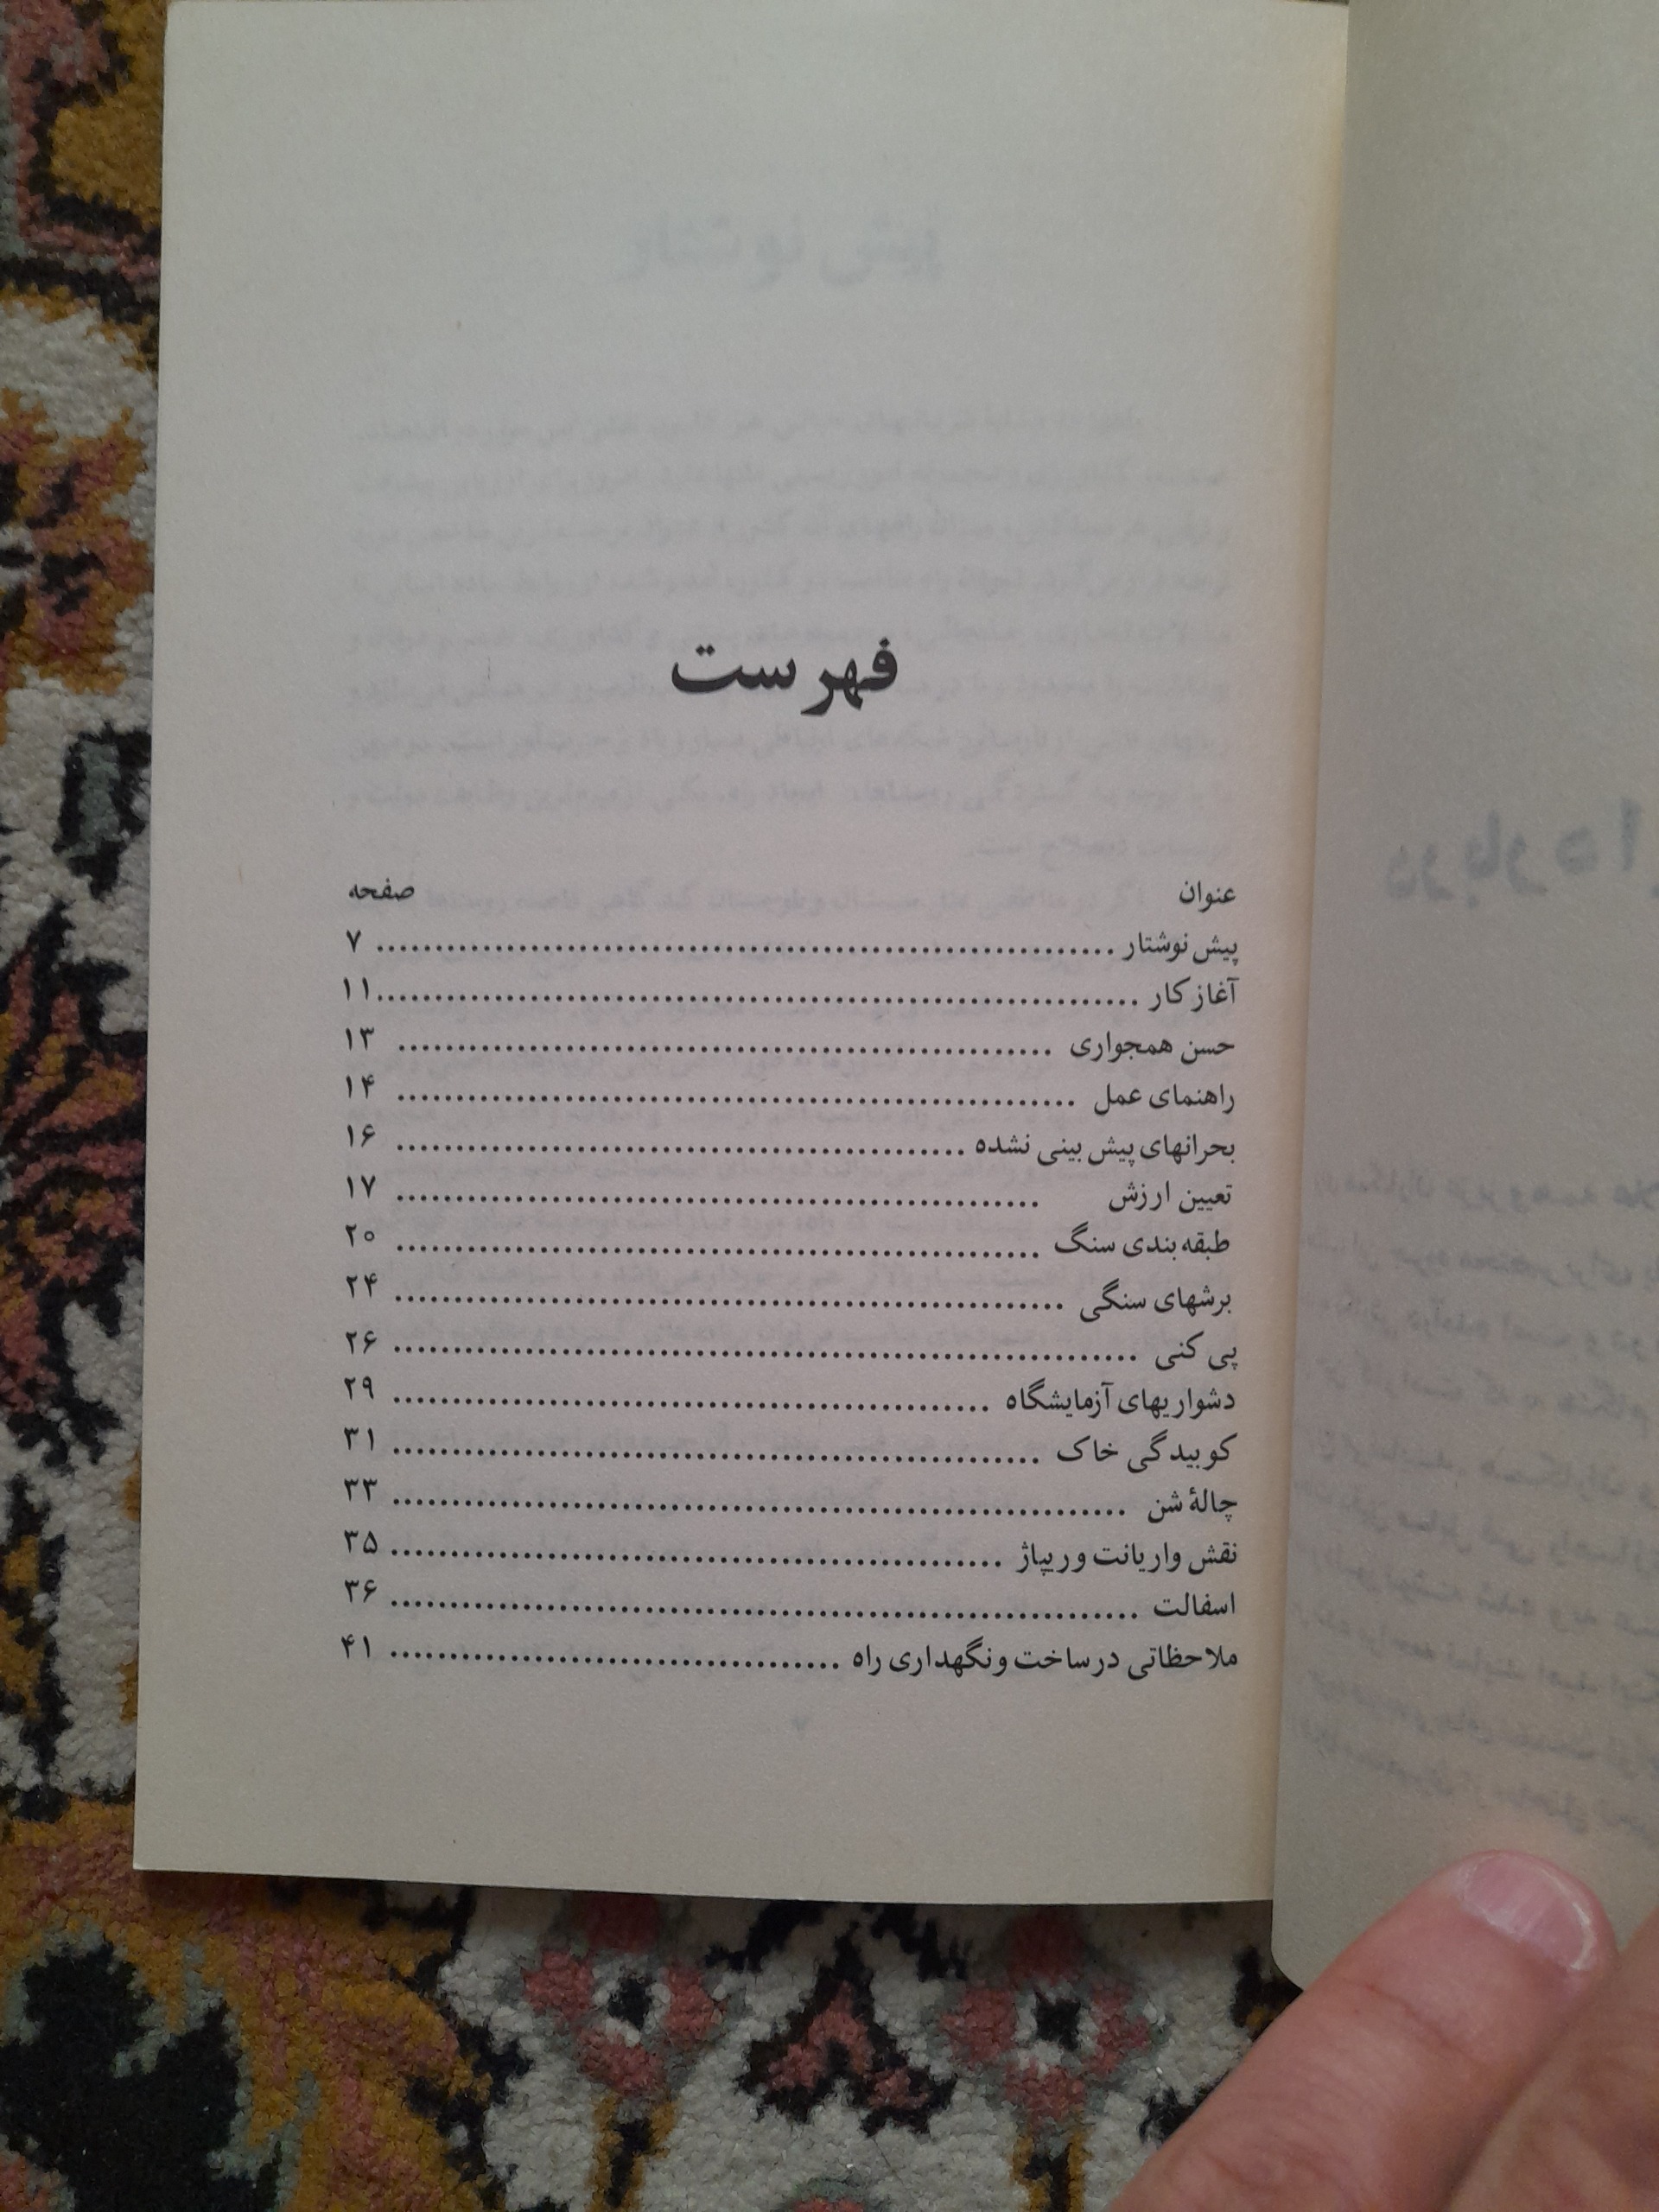 فهرست
عنوان صفحه
پیش نوشتار ........ ۷
آغاز کار ........ ۱۱
حسن همجواری ........ ۱۳
راهنمای عمل ........ ۱۴
بحرانهای پیش بینی نشده ........ ۱۶
تعیین ارزش ........ ۱۷
طبقه بندی سنگ ........ ۲۰
برشهای سنگی ........ ۲۴
پی کنی ........ ۲۶
دشواریهای آزمایشگاه ........ ۲۹
کوبیدگی خاک ........ ۳۱
چالهٔ شن ........ ۳۳
نقش واریانت و ریپاژ ........ ۳۵
اسفالت ........ ۳۶
ملاحظاتی در ساخت و نگهداری راه ........ ۴۱